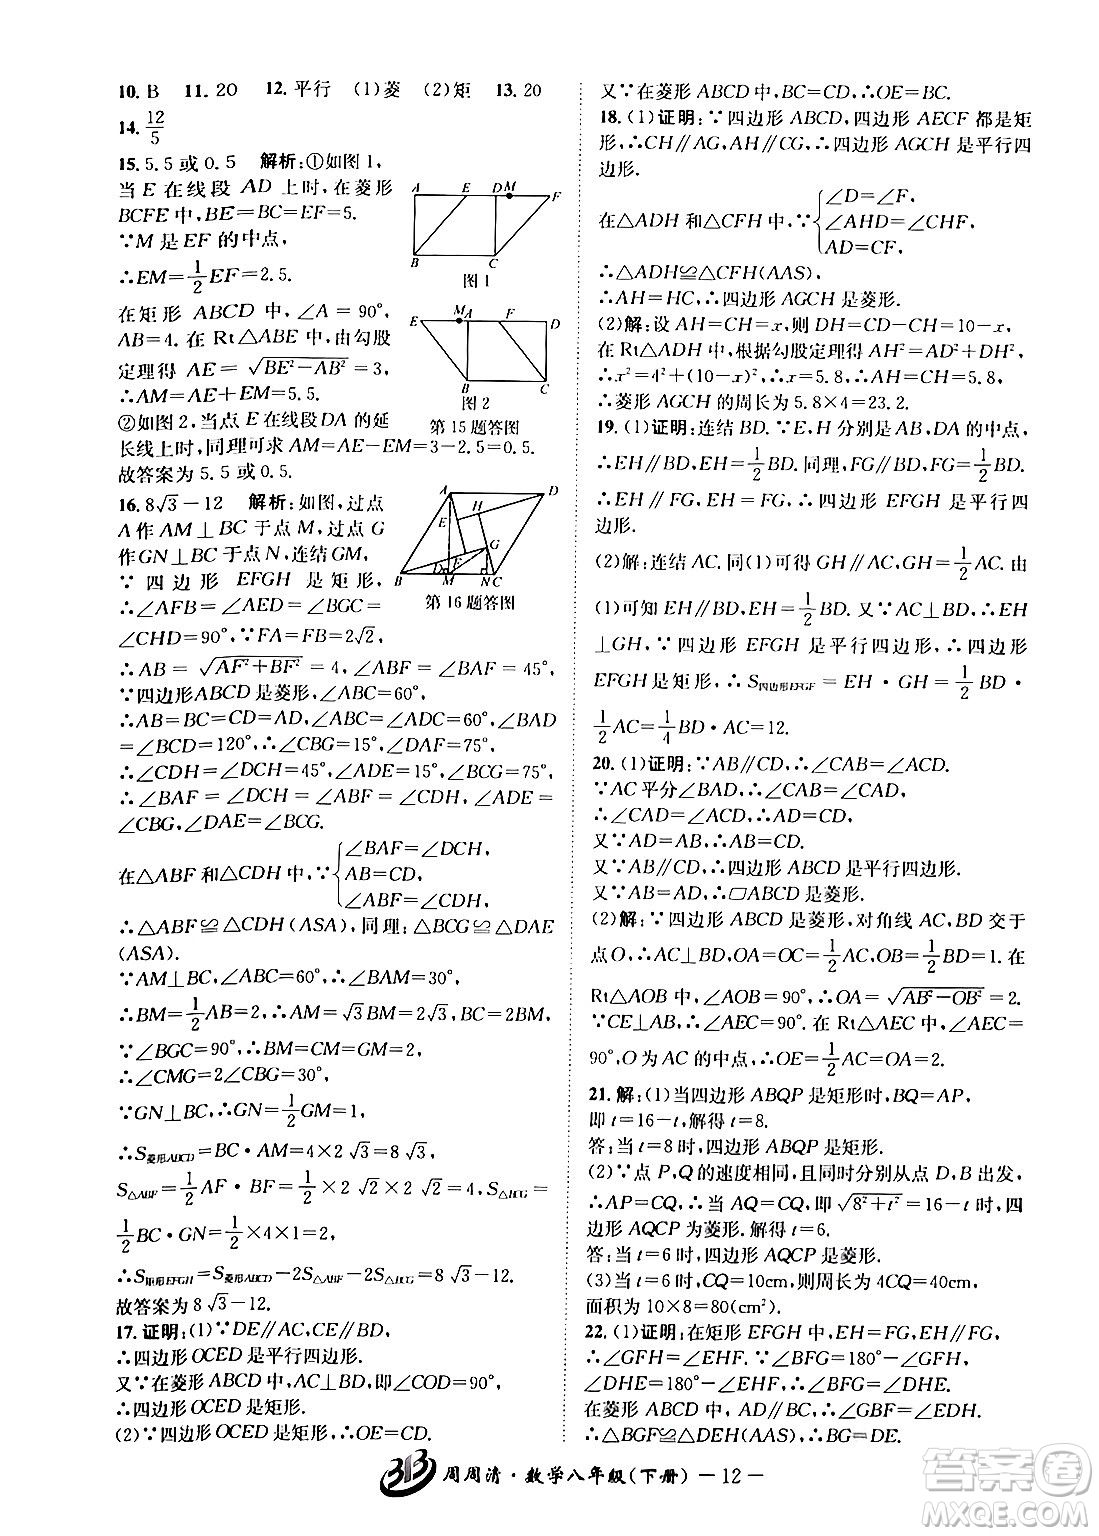 10. B　11. 20　12. 平行　(1)菱　(2)矩　13. 20
14. 12/5
15. 5.5或0.5　解析:①如图1,
当E在线段AD上时,在菱形
BCFE中,BE=BC=EF=5.
∵M是EF的中点,
∴EM=1/2EF=2.5.
在矩形ABCD中,∠A=90°,
AB=4.在Rt△ABE中,由勾股
定理得AE=√(BE²-AB²)=3,
∴AM=AE+EM=5.5.
②如图2,当点E在线段DA的延
长线上时,同理可求AM=AE-EM=3-2.5=0.5.
故答案为5.5或0.5.
A E D M F
B C
图1
E M A F D
B C
图2
第15题答图
16. 8√3-12　解析:如图,过点
A作AM⊥BC于点M,过点G
作GN⊥BC于点N,连结GM,
∵四边形EFGH是矩形,
∴∠AFB=∠AED=∠BGC=
∠CHD=90°,∵FA=FB=2√2,
∴AB=√(AF²+BF²)=4,∠ABF=∠BAF=45°,
∵四边形ABCD是菱形,∠ABC=60°,
∴AB=BC=CD=AD,∠ABC=∠ADC=60°,∠BAD
=∠BCD=120°,∴∠CBG=15°,∠DAF=75°,
∴∠CDH=∠DCH=45°,∠ADE=15°,∠BCG=75°,
∴∠BAF=∠DCH=∠ABF=∠CDH,∠ADE=
∠CBG,∠DAE=∠BCG.
在△ABF和△CDH中,∵{∠BAF=∠DCH,
AB=CD,
∠ABF=∠CDH,
∴△ABF≌△CDH(ASA),同理:△BCG≌△DAE
(ASA).
∵AM⊥BC,∠ABC=60°,∴∠BAM=30°,
∴BM=1/2AB=2,∴AM=√3BM=2√3,BC=2BM,
∵∠BGC=90°,∴BM=CM=GM=2,
∴∠CMG=2∠CBG=30°,
∵GN⊥BC,∴GN=1/2GM=1,
∴S菱形ABCD=BC·AM=4×2√3=8√3,
S△ABF=1/2AF·BF=1/2×2√2×2√2=4,S△BCG=
1/2BC·GN=1/2×4×1=2,
∴S矩形EFGH=S菱形ABCD-2S△ABF-2S△BCG=8√3-12.
故答案为8√3-12.
A D H E G
B F M N C
第16题答图
17. 证明:(1)∵DE∥AC,CE∥BD,
∴四边形OCED是平行四边形.
又∵在菱形ABCD中,AC⊥BD,即∠COD=90°,
∴四边形OCED是矩形.
(2)∵四边形OCED是矩形,∴OE=CD.
又∵在菱形ABCD中,BC=CD,∴OE=BC.
18. (1)证明:∵四边形ABCD,四边形AECF都是矩
形,∴CH∥AG,AH∥CG,∴四边形AGCH是平行四
边形.
在△ADH和△CFH中,∵{∠D=∠F,
∠AHD=∠CHF,
AD=CF,
∴△ADH≌△CFH(AAS),
∴AH=HC,∴四边形AGCH是菱形.
(2)解:设AH=CH=x,则DH=CD-CH=10-x,
在Rt△ADH中,根据勾股定理得AH²=AD²+DH²,
∴x²=4²+(10-x)²,∴x=5.8,∴AH=CH=5.8,
∴菱形AGCH的周长为5.8×4=23.2.
19. (1)证明:连结BD.∵E,H分别是AB,DA的中点,
∴EH∥BD,EH=1/2BD.同理,FG∥BD,FG=1/2BD,
∴EH∥FG,EH=FG,∴四边形EFGH是平行四
边形.
(2)解:连结AC.同(1)可得GH∥AC,GH=1/2AC.由
(1)可知EH∥BD,EH=1/2BD.又∵AC⊥BD,∴EH
⊥GH,∵四边形EFGH是平行四边形,∴四边形
EFGH是矩形,∴S四边形EFGH=EH·GH=1/2BD·
1/2AC=1/4BD·AC=12.
20. (1)证明:∵AB∥CD,∴∠CAB=∠ACD.
∵AC平分∠BAD,∴∠CAB=∠CAD,
∴∠CAD=∠ACD,∴AD=CD.
又∵AD=AB,∴AB=CD.
又∵AB∥CD,∴四边形ABCD是平行四边形.
又∵AB=AD,∴▱ABCD是菱形.
(2)解:∵四边形ABCD是菱形,对角线AC,BD交于
点O,∴AC⊥BD,OA=OC=1/2AC,OB=1/2BD=1.在
Rt△AOB中,∠AOB=90°,∴OA=√(AB²-OB²)=2.
∵CE⊥AB,∴∠AEC=90°.在Rt△AEC中,∠AEC=
90°,O为AC的中点,∴OE=1/2AC=OA=2.
21. 解:(1)当四边形ABQP是矩形时,BQ=AP,
即t=16-t,解得t=8.
答:当t=8时,四边形ABQP是矩形.
(2)∵点P,Q的速度相同,且同时分别从点D,B出发,
∴AP=CQ,∴当AQ=CQ,即√(8²+t²)=16-t时,四
边形AQCP为菱形.解得t=6.
答:当t=6时,四边形AQCP是菱形.
(3)当t=6时,CQ=10cm,则周长为4CQ=40cm,
面积为10×8=80(cm²).
22. (1)证明:在矩形EFGH中,EH=FG,EH∥FG,
∴∠GFH=∠EHF.∵∠BFG=180°-∠GFH,
∠DHE=180°-∠EHF,∴∠BFG=∠DHE.
在菱形ABCD中,AD∥BC,∴∠GBF=∠EDH.
∴△BGF≌△DEH(AAS),∴BG=DE.
周周清·数学八年级(下册) —12—
答案圈
MXQE.COM